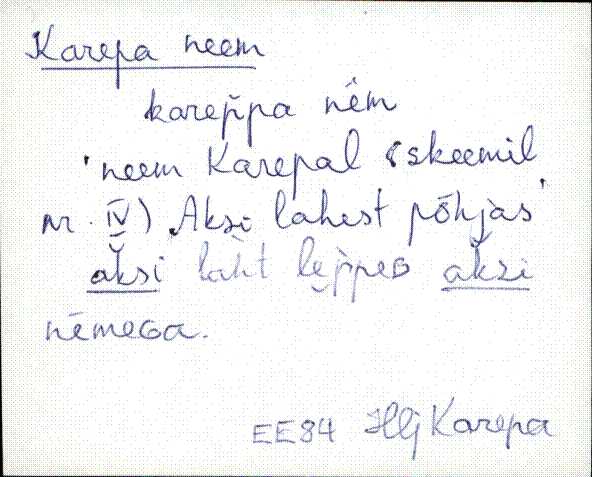 Karepa neem
karep̆pa nēm
'neem Karepal (skeemil
nr. IV) Aksi lahest põhjas'
ak̆si laht lep̆peʙ ak̆si
nēmeɢa.
EE84 Hlj Karepa